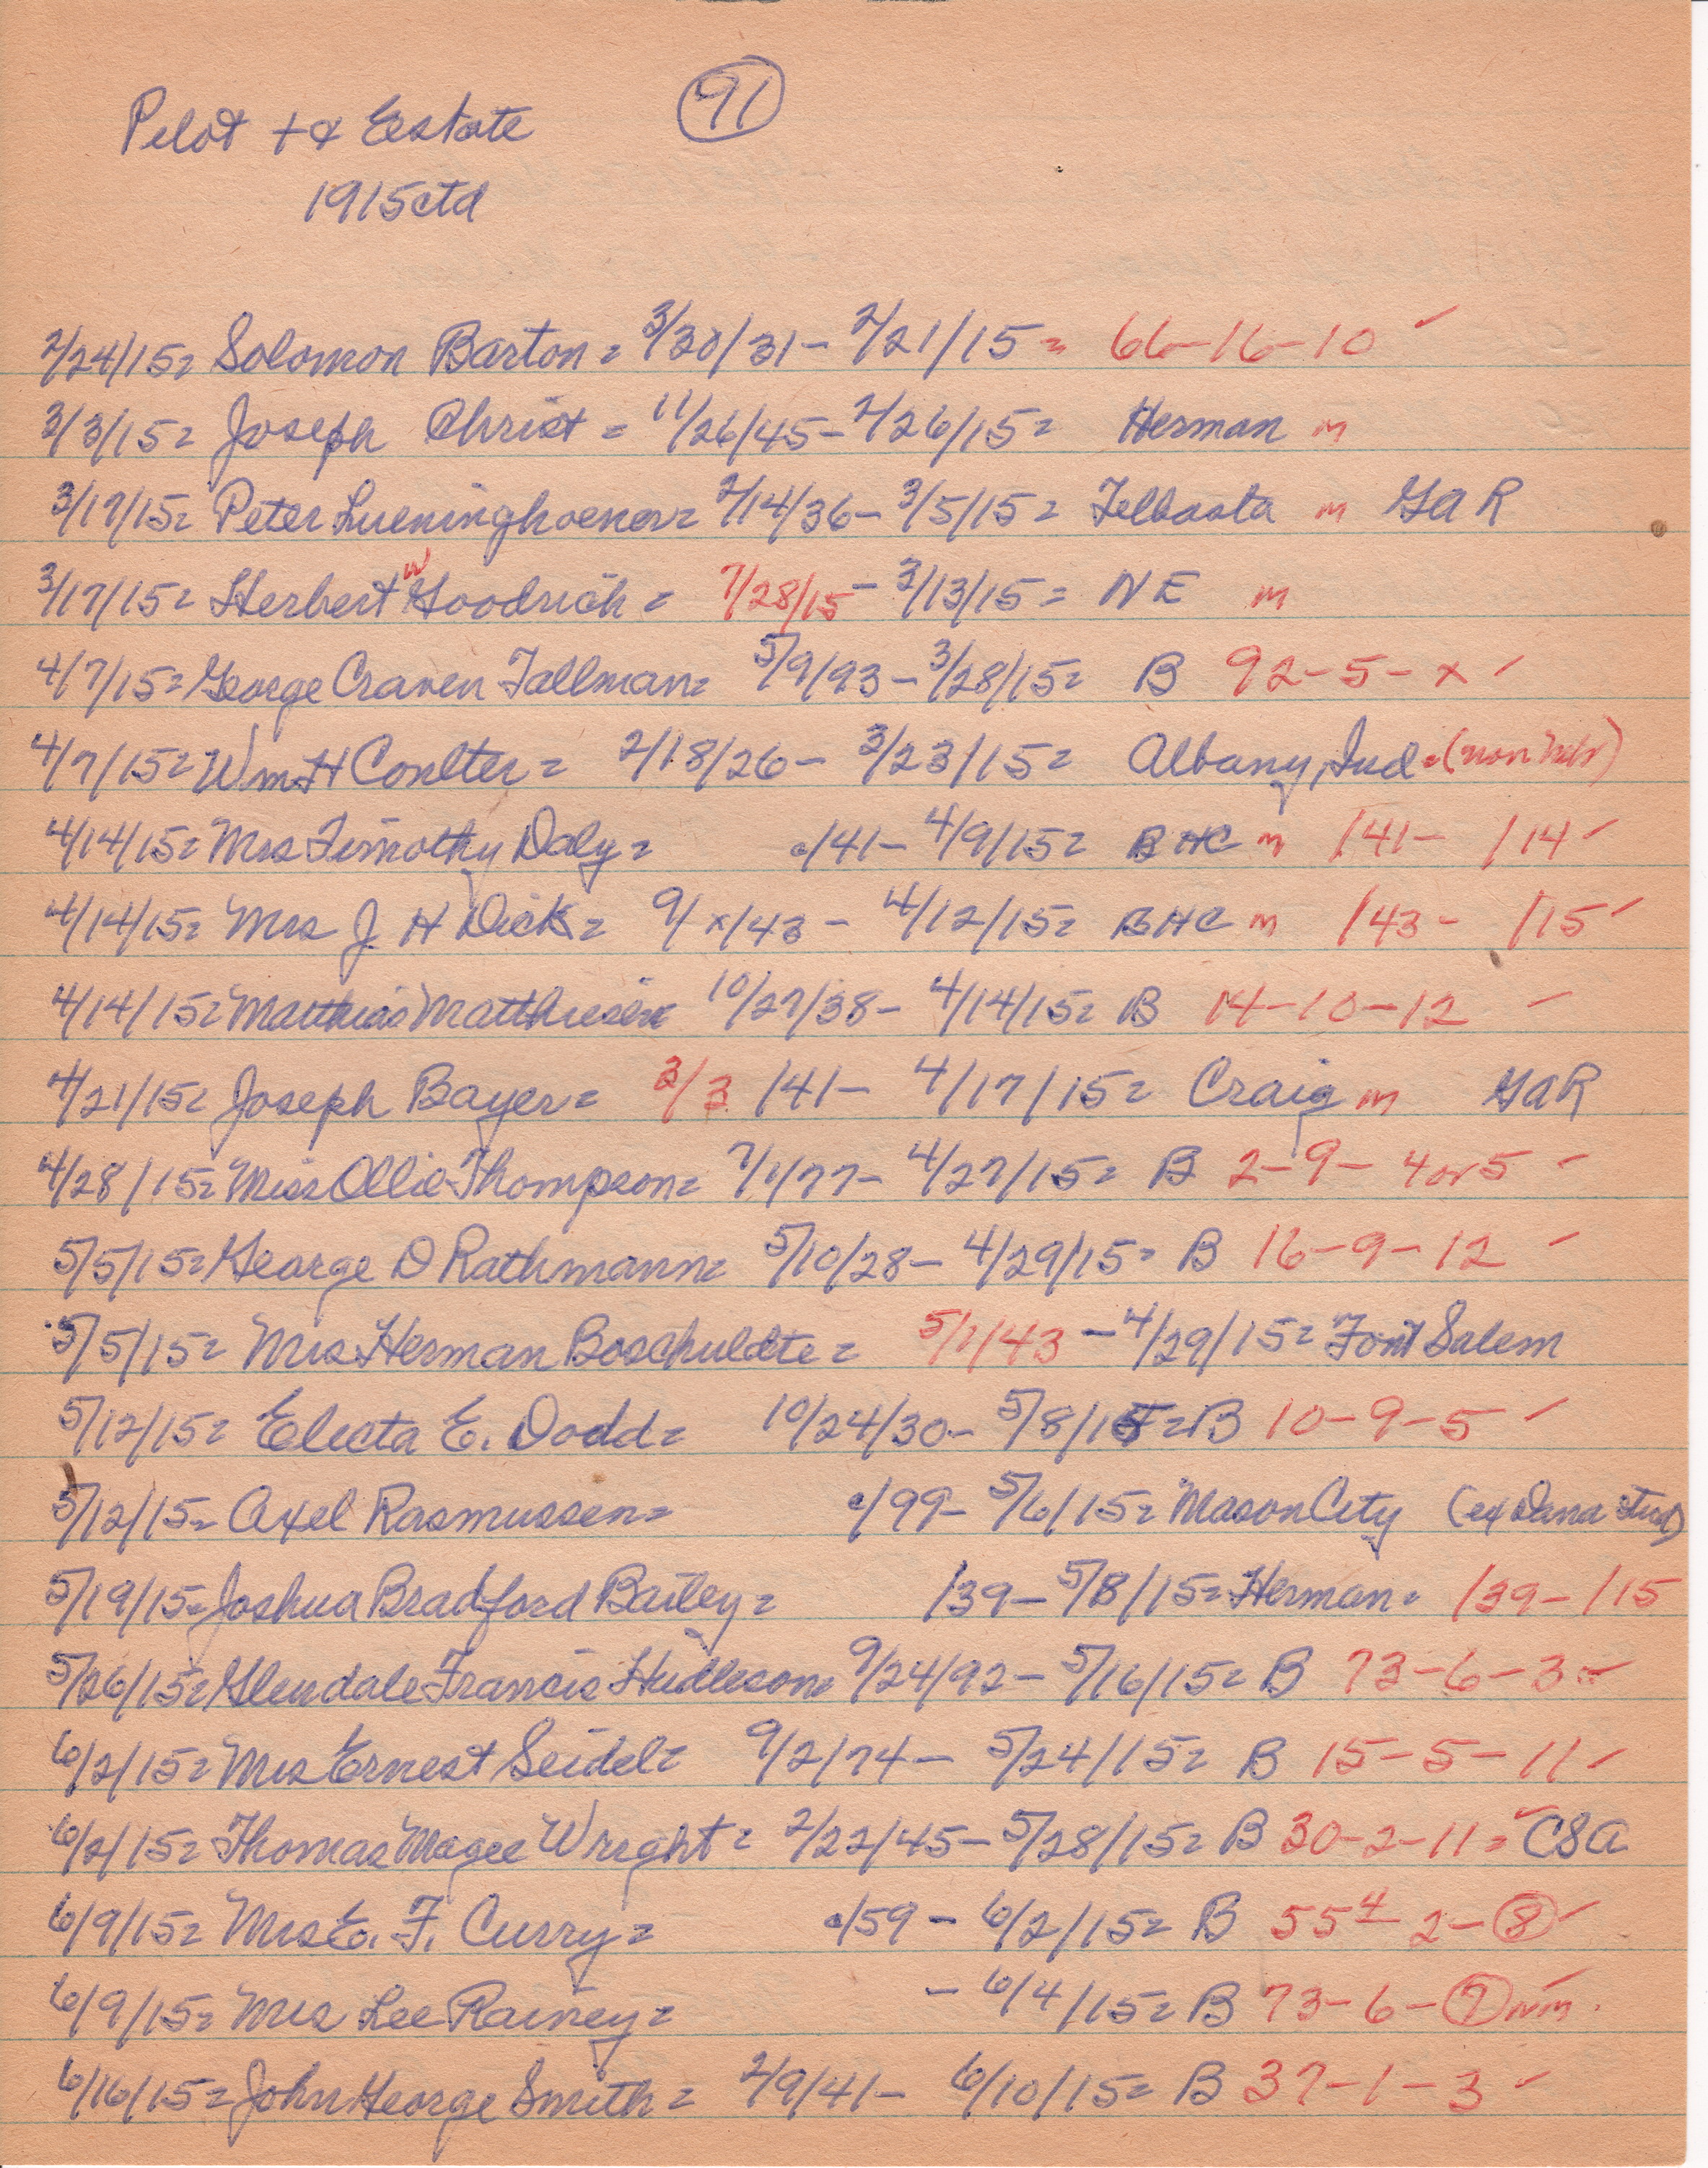 91
Pilot + & Eestate
1915ctd
2/24/15= Solomon Barton = 3/30/31 - 2/21/15 = 66-16-10 ✓
3/3/15= Joseph Christ = 11/26/45 - 2/26/15 = Herman m
3/17/15= Peter Lueninghoener= 2/14/36 - 3/5/15 = Telbasta m GAR
3/17/15= Herbert W Goodrich = 7/28/15 - 3/13/15 = NE m
4/7/15= George Craven Tallman= 5/9/93 - 3/28/15= B 92-5-x ✓
4/7/15= Wm H Coulter = 2/18/26 - 3/23/15= Albany, Ind.
4/14/15= Mrs Timothy Daly = /41 - 4/9/15= BHC m /41 - /14 ✓
4/14/15= Mrs J H Dick = 9/x/43 - 4/12/15= BHC m /43 - /15 ✓
4/14/15= Matthias Matthiesen= 10/27/38 - 4/14/15= B 14-10-12 ✓
4/21/15= Joseph Bayer= 3/3 /41 - 4/17/15= Craig m GAR
4/28/15= Miss Ollie Thompson= 7/1/77 - 4/27/15= B 2-9-4or5 ✓
5/5/15= George D Rathmann= 5/10/28 - 4/29/15= B 16-9-12 ✓
5/5/15= Mrs Herman Boschuldte = 5/1/43 - 4/29/15= Font Salem
5/12/15= Electa E. Dodd= 10/24/30 - 5/8/15= B 10-9-5 ✓
5/12/15= Axel Rasmussen= /99 - 5/6/15= Mason City (ex Dana Stud)
5/19/15= Joshua Bradford Bailey= /39 - 5/8/15= Herman= /39 - /15
5/26/15= Glendale Francis Hudleson= 9/24/92 - 5/16/15= B 73-6-3 ✓
6/2/15= Mrs Ernest Seidel= 9/2/74 - 5/24/15= B 15-5-11 ✓
6/2/15= Thomas Magee Wright= 2/22/45 - 5/28/15= B 30-2-11= ✓ CSA
6/9/15= Mrs E. F. Curry= /59 - 6/2/15= B 55 4 2-8 ✓
6/9/15= Mrs Lee Rainey= - 6/4/15= B 73-6-7 nm.
6/16/15= John George Smith= 2/9/41 - 6/10/15= B 37-1-3 ✓